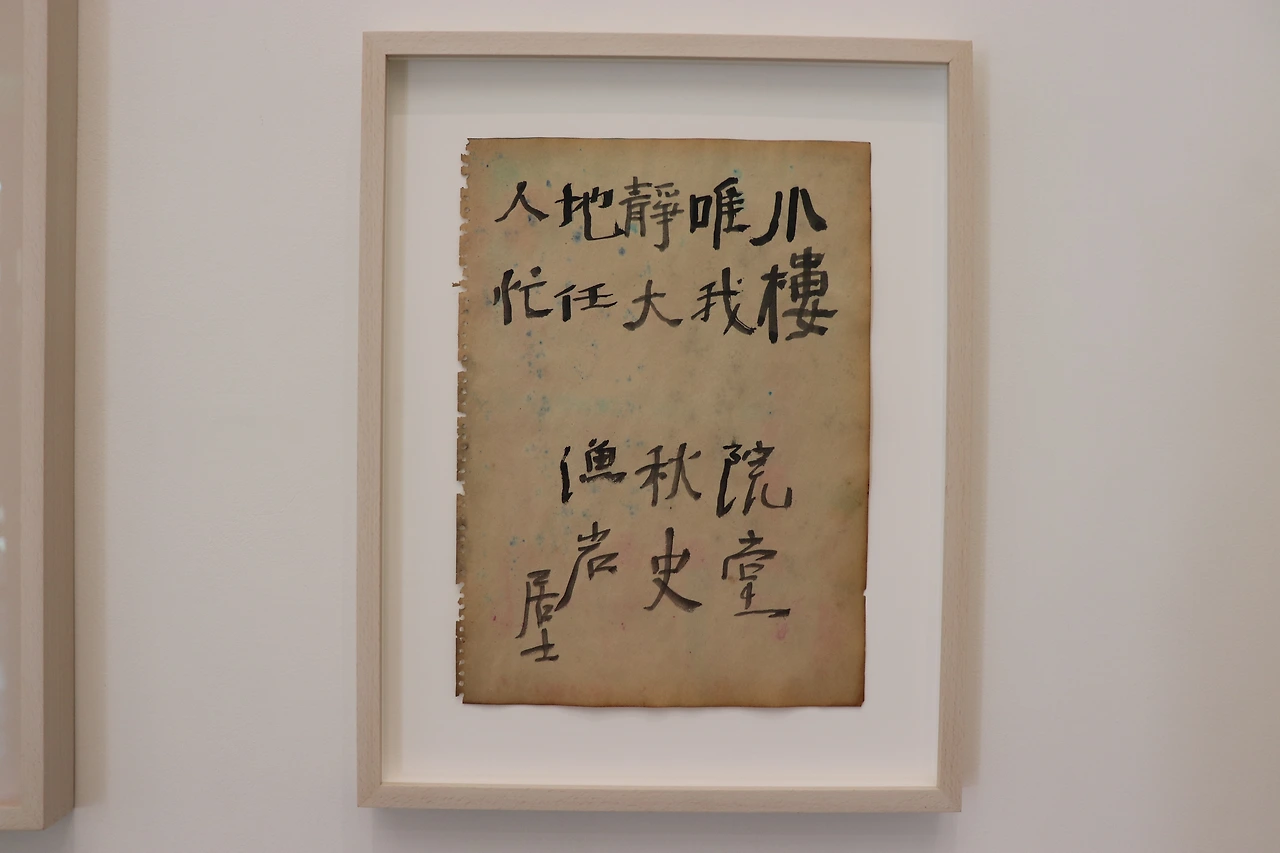 小樓
唯我
靜大
地任
人忙
院堂
秋史
漁岩
居士